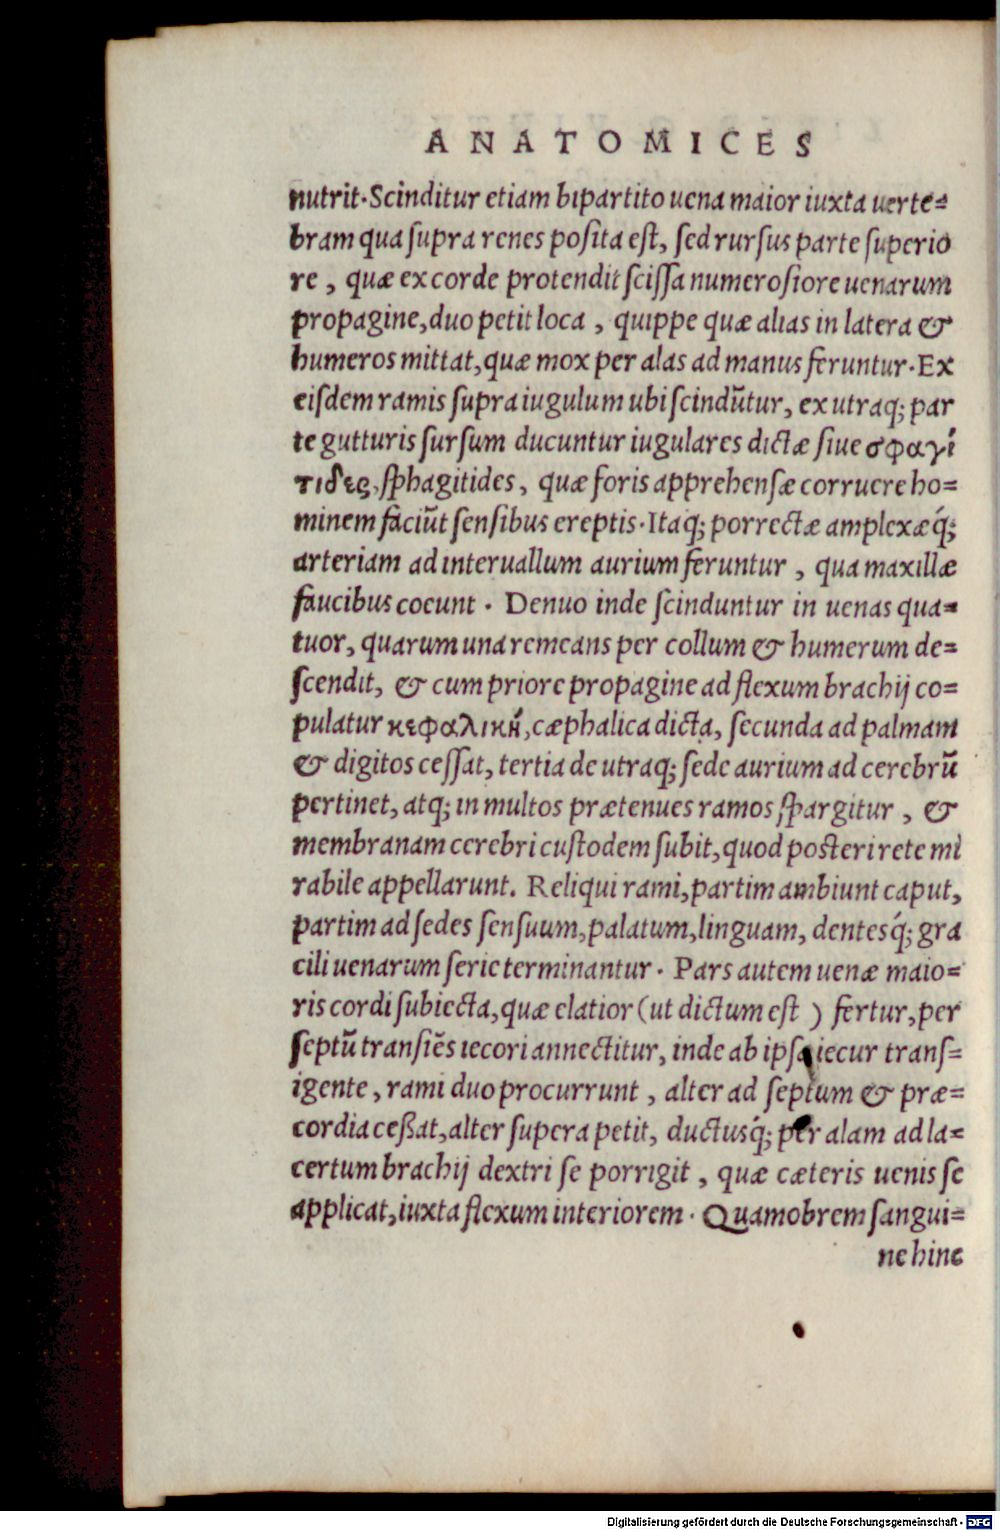 ANATOMICES
nutrit. Scinditur etiam bipartito uena maior iuxta uerte=
bram qua ſupra renes poſita eſt, ſed rurſus parte ſuperio
re, quæ ex corde protendit ſciſſa numeroſiore uenarum
propagine, duo petit loca, quippe quæ alias in latera &
humeros mittat, quæ mox per alas ad manus feruntur. Ex
eiſdem ramis ſupra iugulum ubi ſcindūtur, ex utraq; par
te gutturis ſurſum ducuntur iugulares dictæ ſiue σφαγί
τιδες, ſphagitides, quæ foris apprehenſæ corruere ho=
minem faciūt ſenſibus ereptis. Itaq; porrectæ amplexæq́;
arteriam ad interuallum aurium feruntur, qua maxillæ
faucibus coeunt. Denuo inde ſcinduntur in uenas qua=
tuor, quarum una remeans per collum & humerum de=
ſcendit, & cum priore propagine ad flexum brachij co=
pulatur κεφαλικὴ, cæphalica dicta, ſecunda ad palmam
& digitos ceſſat, tertia de utraq; ſede aurium ad cerebrū
pertinet, atq; in multos prætenues ramos ſpargitur, &
membranam cerebri cuſtodem ſubit, quod poſteri rete mi
rabile appellarunt. Reliqui rami, partim ambiunt caput,
partim ad ſedes ſenſuum, palatum, linguam, dentesq́; gra
cili uenarum ſerie terminantur. Pars autem uenæ maio=
ris cordi ſubiecta, quæ elatior (ut dictum eſt) fertur, per
ſeptū tranſiēs iecori annectitur, inde ab ipſa iecur tranſ=
igente, rami duo procurrunt, alter ad ſeptum & præ=
cordia ceßat, alter ſupera petit, ductusq́; per alam ad la=
certum brachij dextri ſe porrigit, quæ cæteris uenis ſe
applicat, iuxta flexum interiorem. Quamobrem ſangui=
ne hinc
Digitalisierung gefördert durch die Deutsche Forschungsgemeinschaft - DFG